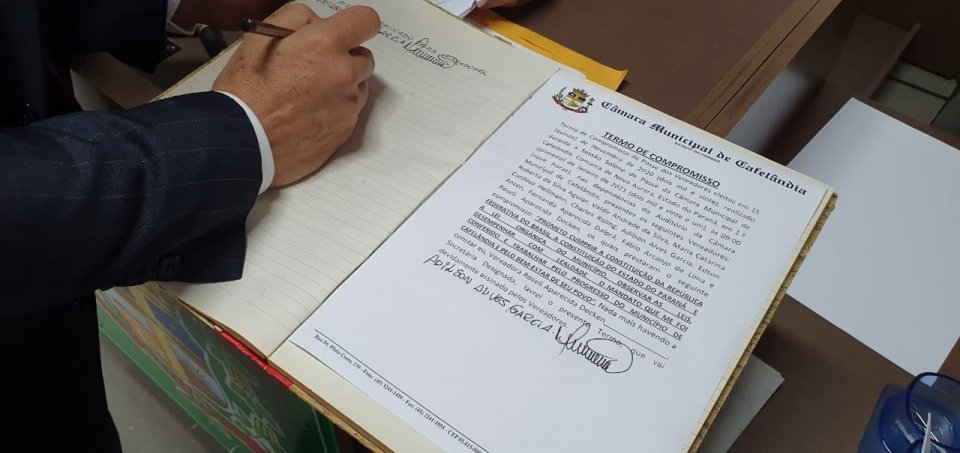 Câmara Municipal de Cafelândia
ESTADO DO PARANÁ
TERMO DE COMPROMISSO
Termo de Compromisso de Posse dos Vereadores eleitos em 15
(quinze) de Novembro de 2020 (dois mil e vinte), realizado
durante a Sessão Solene de Posse da Câmara Municipal de
Cafelândia, Comarca de Nova Aurora, Estado do Paraná, em 1.º
(primeiro) de Janeiro de 2021 (dois mil e vinte e um), às 09:00
(nove horas), nas dependências do Auditório da Câmara
Municipal de Cafelândia, presentes os seguintes Vereadores:
Roberto da Silva Aguiar, Valdir Andrade da Silva, Maria Catarina
Cardoso Hellmann, Charles Roling, Adilson Alves Garcia, Edson
Anzen, Fernanda Aparecida Dalpcá, Fábio Arcanjo de Lima e
Roseli Aparecida Decken, os quais prestaram o seguinte
compromisso: "PROMETO CUMPRIR A CONSTITUIÇÃO DA REPÚBLICA
FEDERATIVA DO BRASIL, A CONSTITUIÇÃO DO ESTADO DO PARANÁ E
A LEI ORGÂNICA DO MUNICÍPIO, OBSERVAR AS LEIS,
DESEMPENHAR COM LEALDADE O MANDATO QUE ME FOI
CONFERIDO E TRABALHAR PELO PROGRESSO DO MUNICÍPIO DE
CAFELÂNDIA E PELO BEM-ESTAR DE SEU POVO". Nada mais havendo a
constar eu, Vereadora Roseli Aparecida Decken
Secretária Designada, lavrei o presente Termo, que vai
devidamente assinado pelos Vereadores.
ADILSON ALVES GARCIA